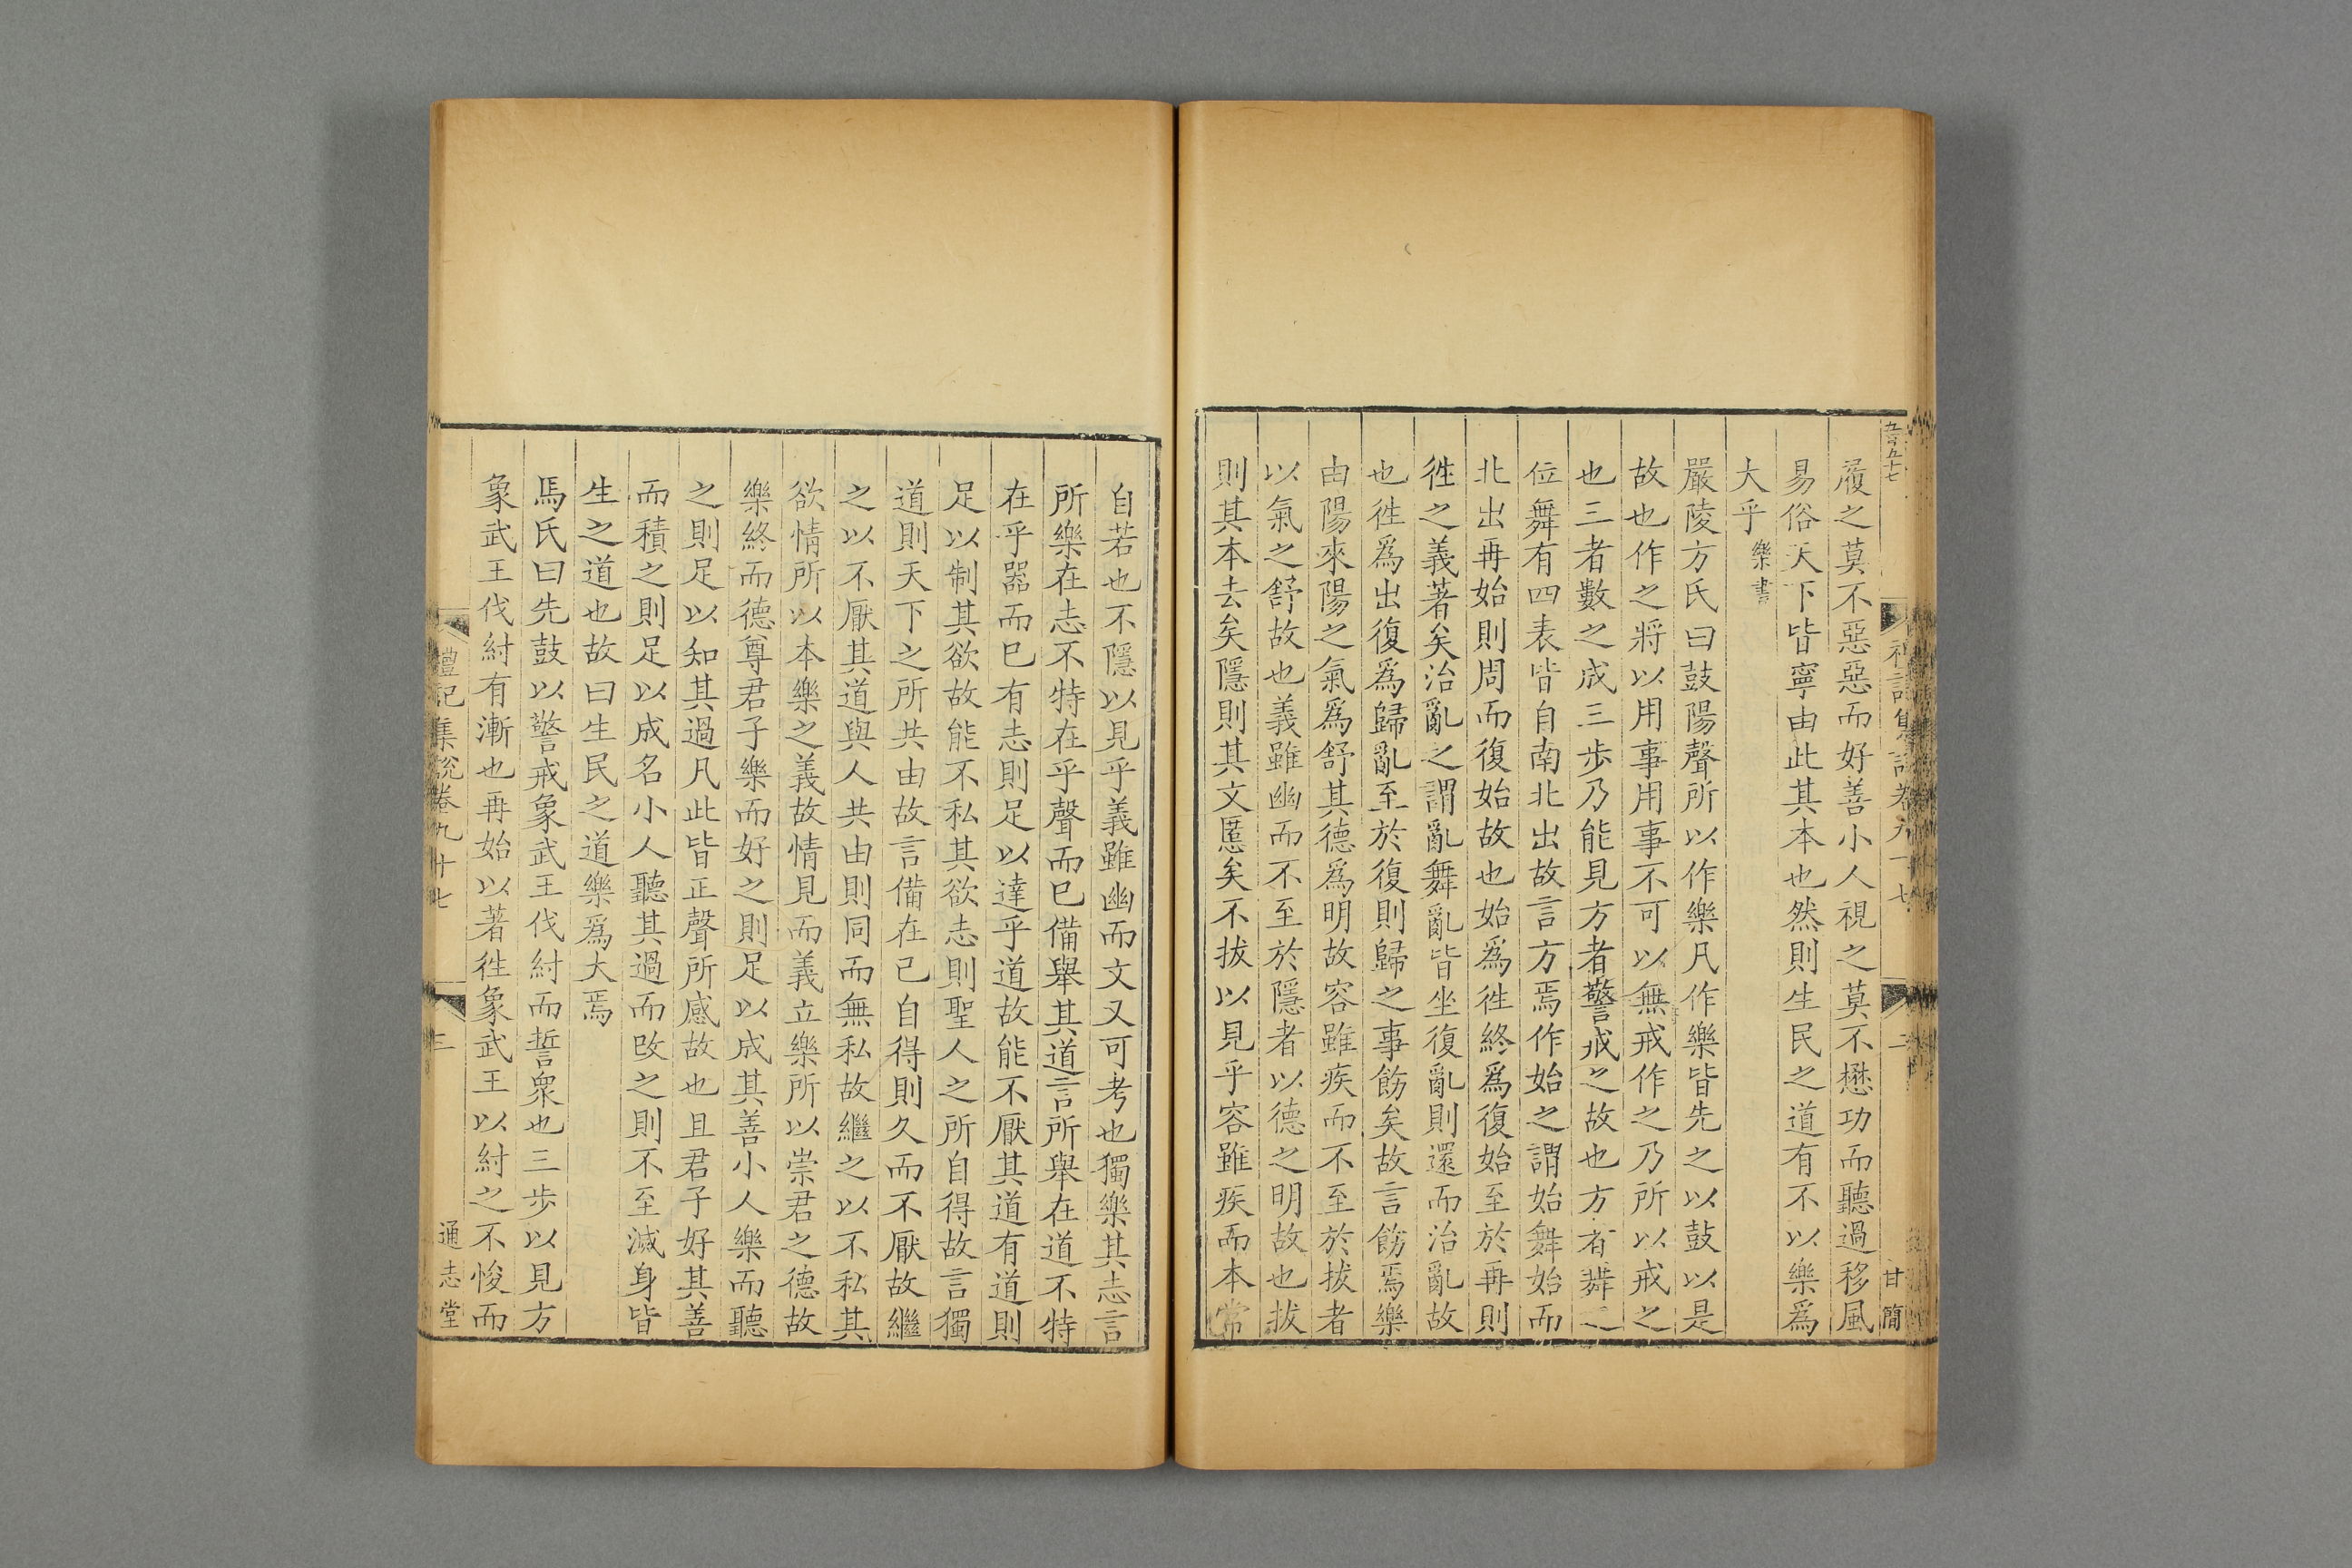 履之莫不惡惡而好善小人視之莫不懋功而聽過移風
易俗天下皆寧由此其本也然則生民之道有不以樂爲
大乎樂書
嚴陵方氏曰鼓陽聲所以作樂凡作樂皆先之以鼓以是
故也作之將以用事用事不可以無戒作之乃所以戒之
也三者數之成三步乃能見方者警戒之故也方者舞之
位舞有四表皆自南北出故言方焉作始之謂始舞始而
北出再始則周而復始故也始爲徃終爲復始至於再則
徃之義著矣治亂之謂亂舞亂皆坐復亂則還而治亂故
也徃爲出復爲歸亂至於復則歸之事飭矣故言飭焉樂
由陽來陽之氣爲舒其德爲明故容雖疾而不至於拔者
以氣之舒故也義雖幽而不至於隱者以德之明故也拔
則其本去矣隱則其文慝矣不拔以見乎容雖疾而本常
自若也不隱以見乎義雖幽而文又可考也獨樂其志言
所樂在志不特在乎聲而已備舉其道言所舉在道不特
在乎器而已有志則足以達乎道故能不厭其道有道則
足以制其欲故能不私其欲志則聖人之所自得故言獨
道則天下之所共由故言備在己自得則久而不厭故繼
之以不厭其道與人共由則同而無私故繼之以不私其
欲情所以本樂之義故情見而義立樂所以崇君之德故
樂終而德尊君子樂而好之則足以成其善小人樂而聽
之則足以知其過凡此皆正聲所感故也且君子好其善
而積之則足以成名小人聽其過而改之則不至滅身皆
生之道也故曰生民之道樂爲大焉
馬氏曰先鼓以警戒象武王伐紂而誓衆也三步以見方
象武王伐紂有漸也再始以著徃象武王以紂之不悛而
禮記集說卷九十七
三
通志堂
二
甘簡